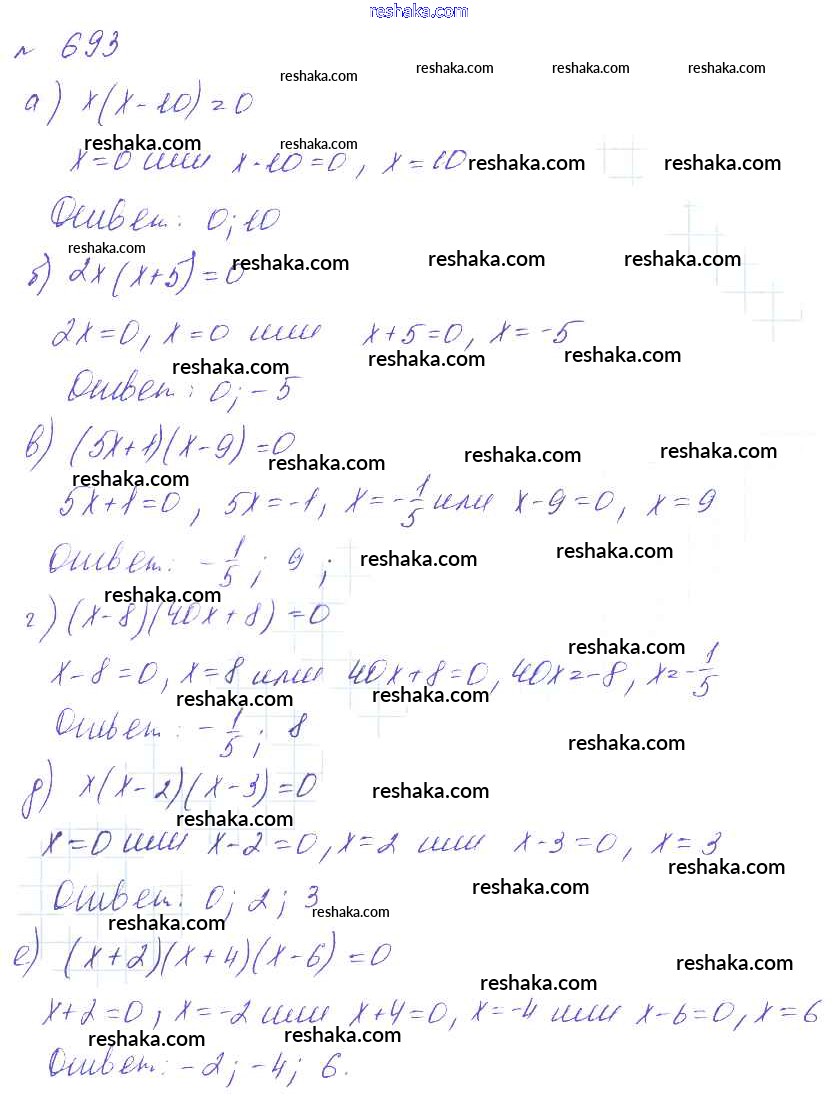 reshaka.com
№ 693
reshaka.com reshaka.com reshaka.com reshaka.com
а) x(x-10)=0
reshaka.com reshaka.com
x=0 или x-10=0, x=10 reshaka.com reshaka.com
Ответ: 0; 10
reshaka.com reshaka.com reshaka.com reshaka.com
б) 2x(x+5)=0
2x=0, x=0 или x+5=0, x=-5
reshaka.com reshaka.com reshaka.com
Ответ: 0; -5
в) (5x+1)(x-9)=0
reshaka.com reshaka.com reshaka.com reshaka.com
5x+1=0, 5x=-1, x=-1/5 или x-9=0, x=9
Ответ: -1/5; 9; reshaka.com reshaka.com
reshaka.com
г) (x-8)(40x+8)=0
reshaka.com
x-8=0, x=8 или 40x+8=0, 40x=-8, x=-1/5
reshaka.com reshaka.com
Ответ: -1/5; 8
reshaka.com
д) x(x-2)(x-3)=0 reshaka.com
reshaka.com
x=0 или x-2=0, x=2 или x-3=0, x=3
reshaka.com reshaka.com
Ответ: 0; 2; 3
reshaka.com reshaka.com
е) (x+2)(x+4)(x-6)=0 reshaka.com
reshaka.com
x+2=0, x=-2 или x+4=0, x=-4 или x-6=0, x=6
reshaka.com reshaka.com
Ответ: -2; -4; 6.